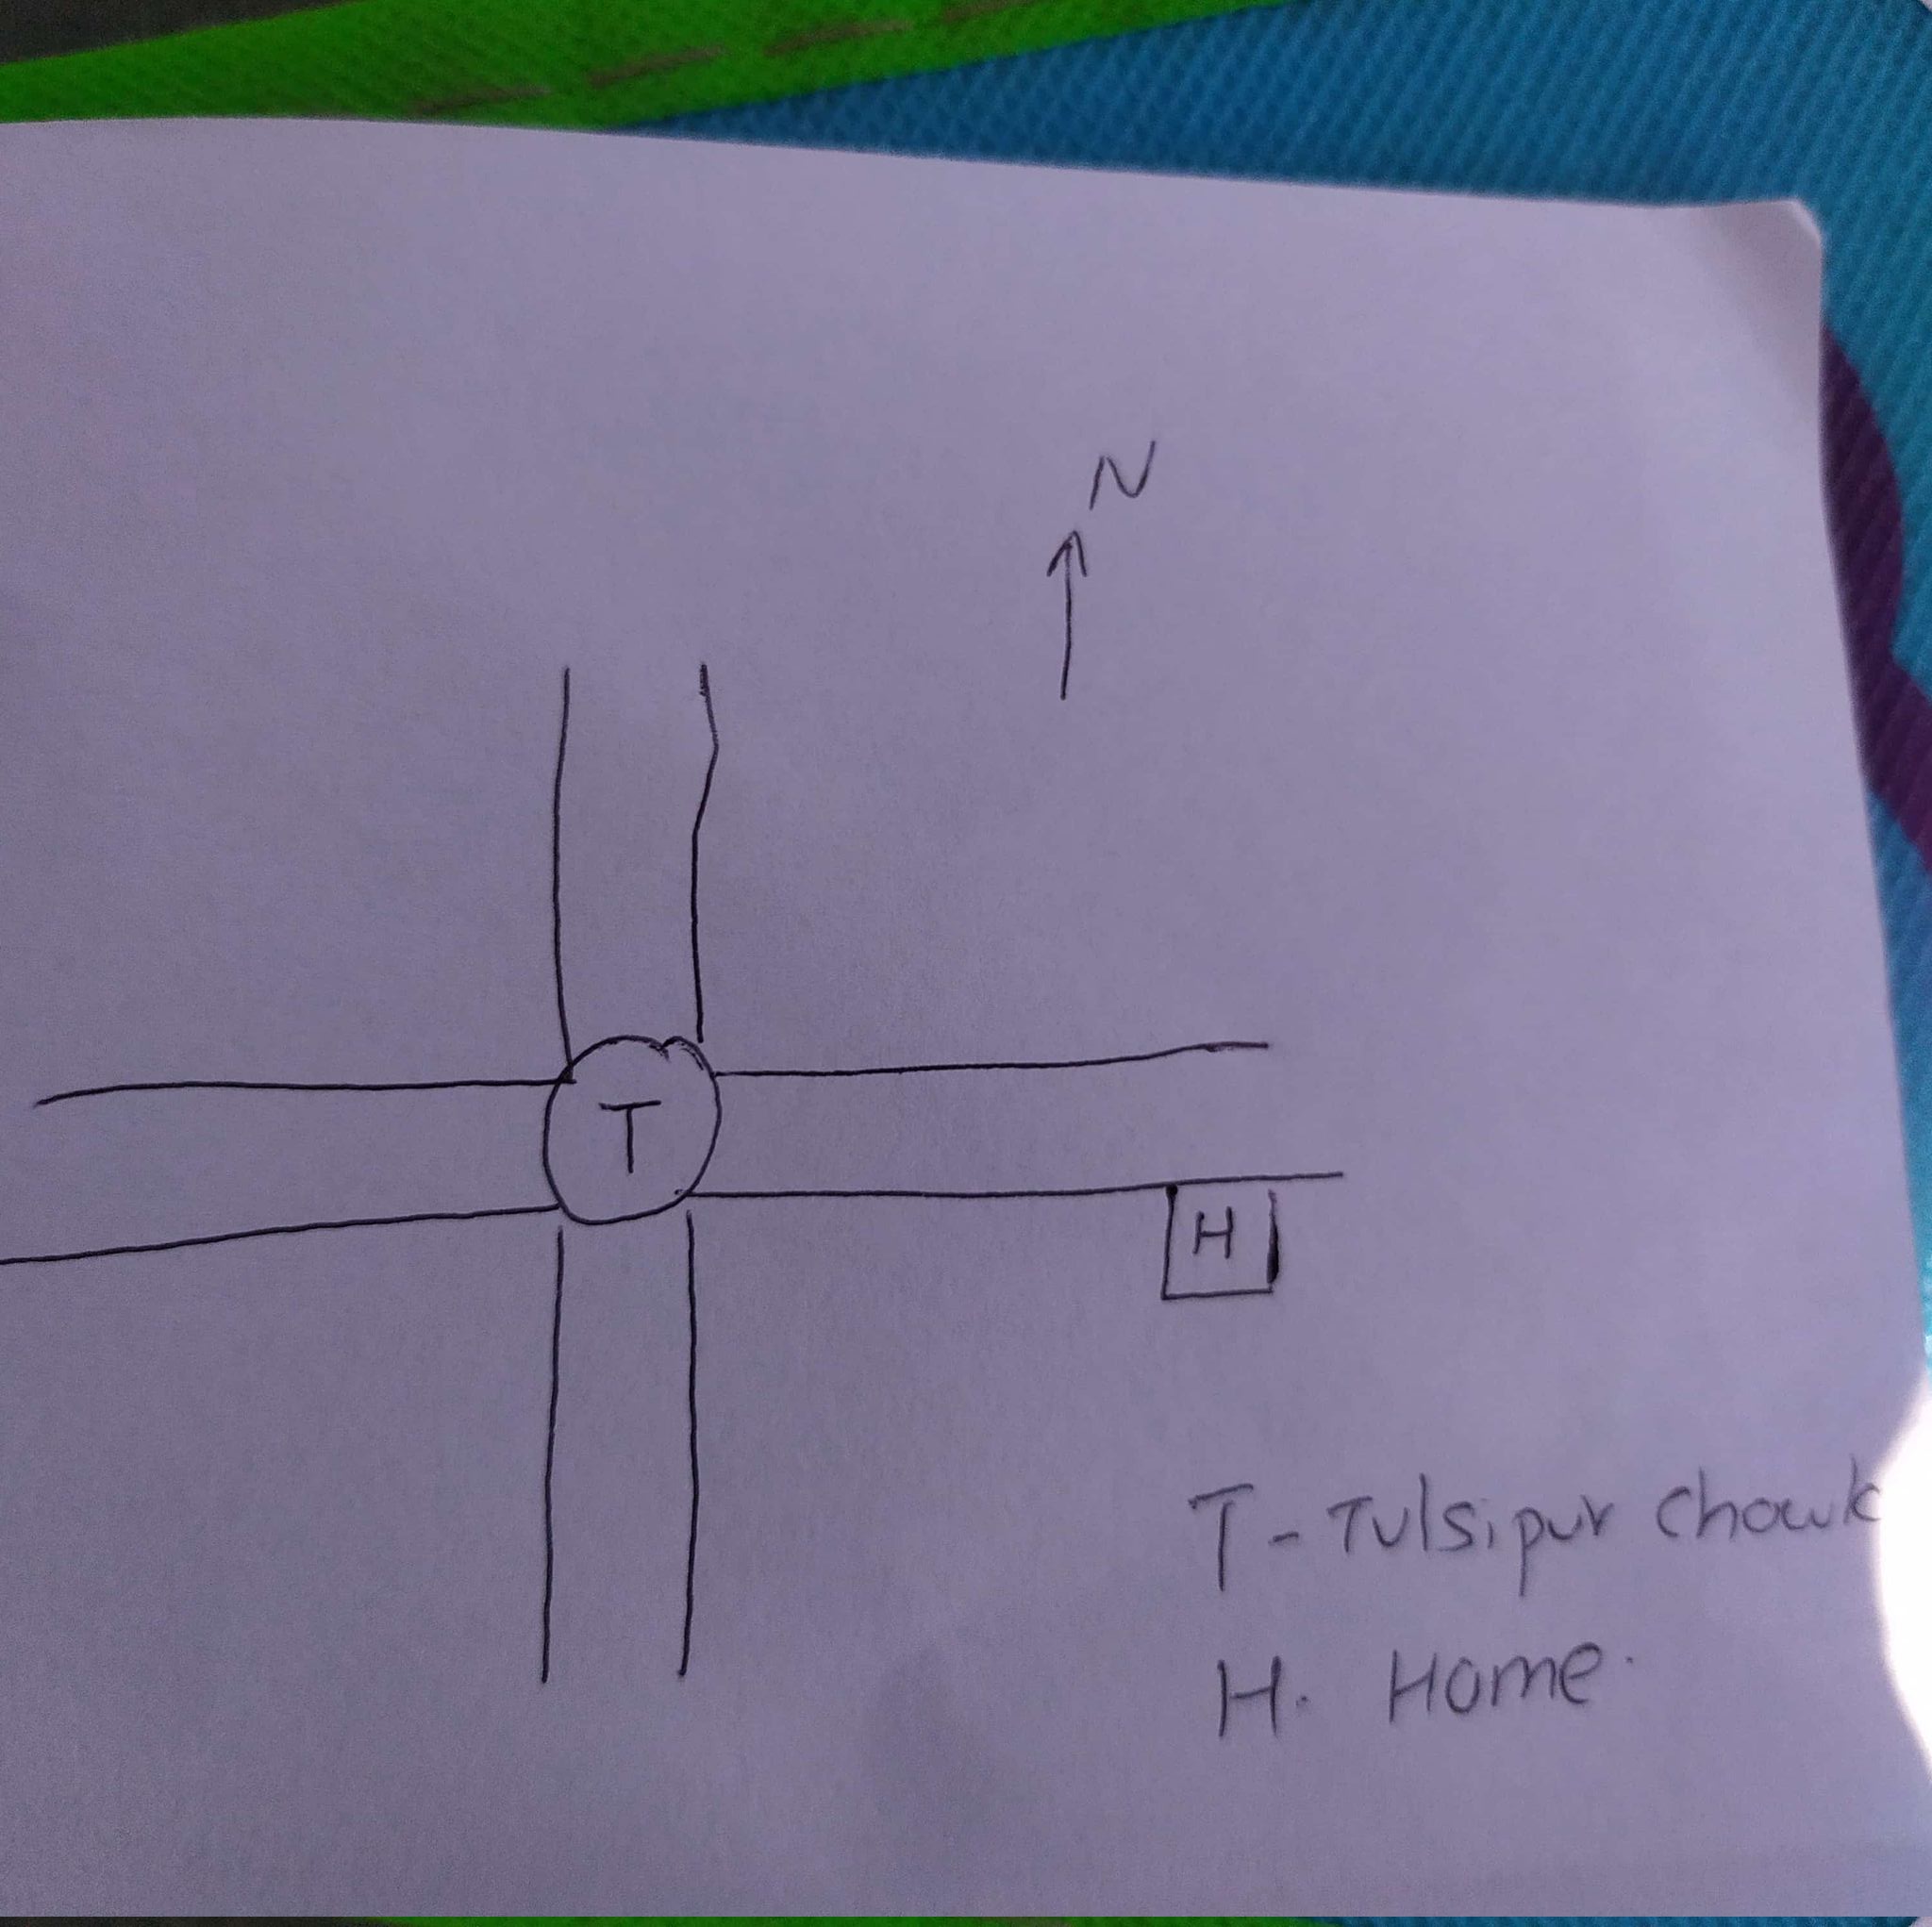 N
T
H
T - Tulsipur Chowk
H. Home.